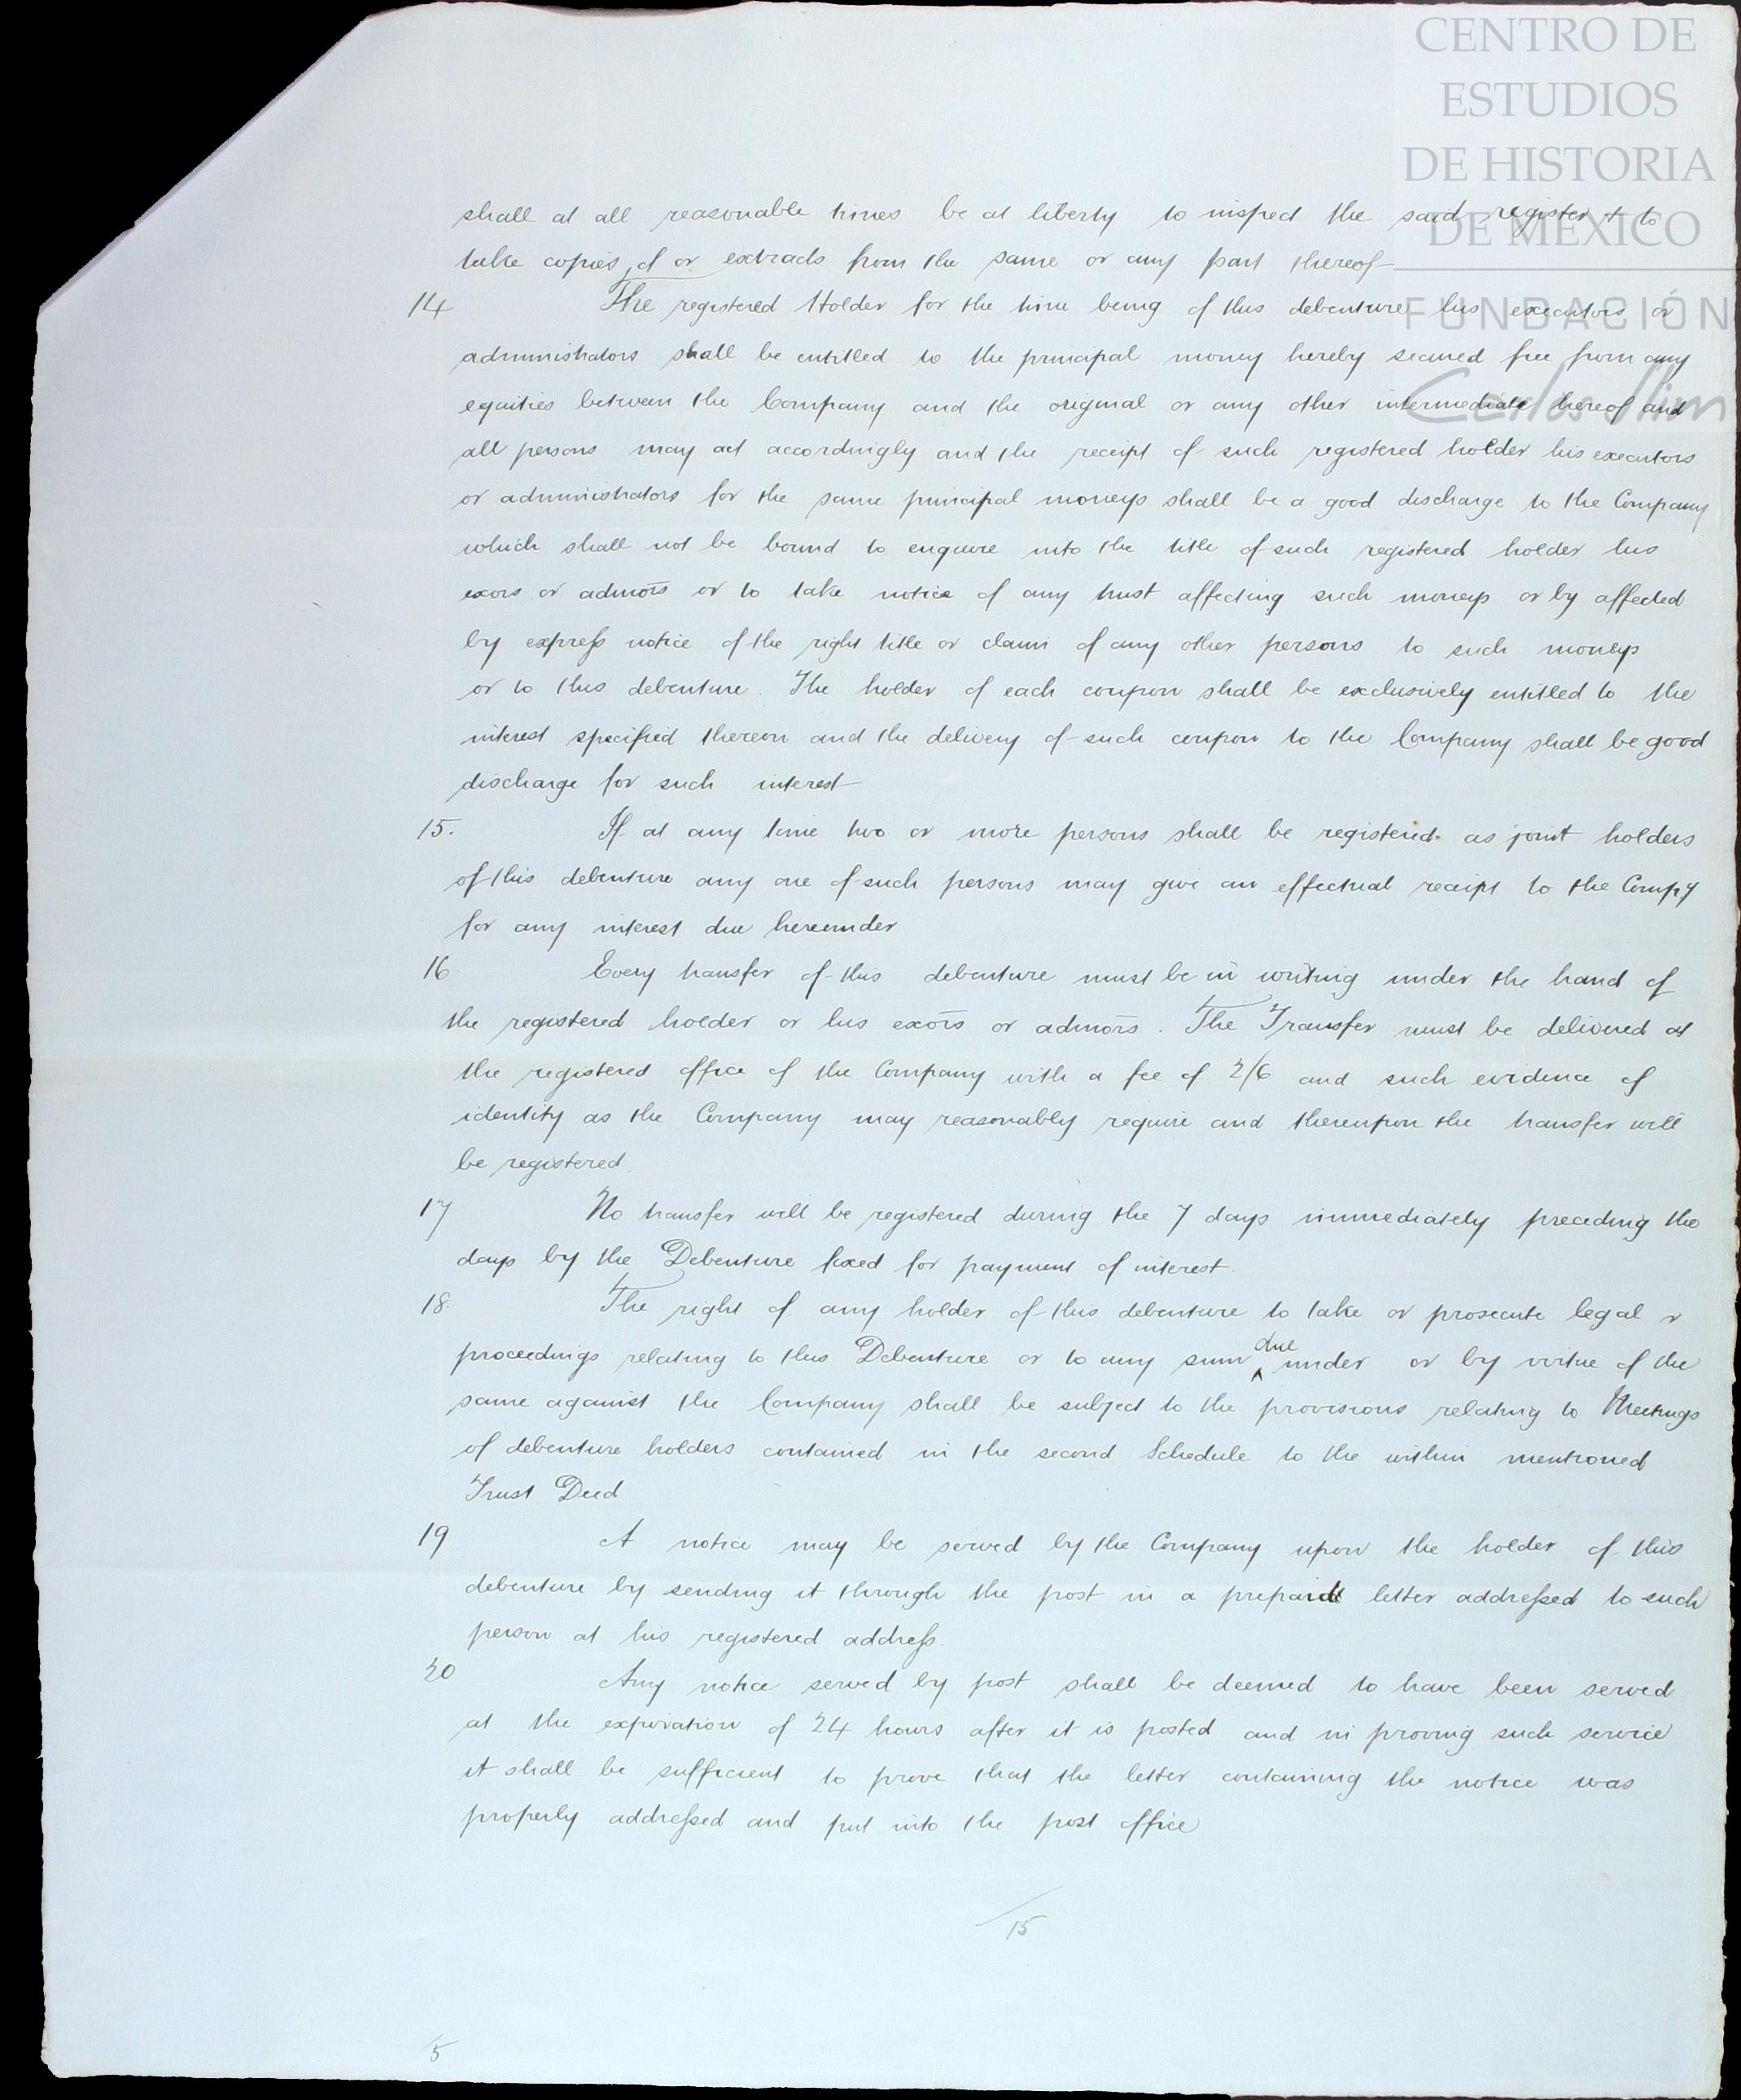 CENTRO DE
ESTUDIOS
DE HISTORIA
DE MÉXICO
FUNDACIÓN
Carlos Slim
shall at all reasonable times be at liberty to inspect the said register & to
take copies of or extracts from the same or any part thereof
14 The registered Holder for the time being of this debenture his executors or
administrators shall be entitled to the principal money hereby secured free from any
equities between the Company and the original or any other intermediate hereof and
all persons may act accordingly and the receipt of such registered holder his executors
or administrators for the same principal moneys shall be a good discharge to the Company
which shall not be bound to enquire into the title of such registered holder his
exors or admors or to take notice of any trust affecting such moneys or by affected
by express notice of the right title or claim of any other persons to such moneys
or to this debenture. The holder of each coupon shall be exclusively entitled to the
interest specified thereon and the delivery of such coupon to the Company shall be good
discharge for such interest
15. If at any time two or more persons shall be registered as joint holders
of this debenture any one of such persons may give an effectual receipt to the Compy
for any interest due hereunder
16 Every transfer of this debenture must be in writing under the hand of
the registered holder or his exors or admors. The Transfer must be delivered at
the registered office of the Company with a fee of 2/6 and such evidence of
identity as the Company may reasonably require and thereupon the transfer will
be registered.
17 No transfer will be registered during the 7 days immediately preceding the
days by the Debenture fixed for payment of interest.
18. The right of any holder of this debenture to take or prosecute legal
proceedings relating to this Debenture or to any sum due under or by virtue of the
same against the Company shall be subject to the provisions relating to Meetings
of debenture holders contained in the second Schedule to the within mentioned
Trust Deed
19 A notice may be served by the Company upon the holder of this
debenture by sending it through the post in a prepaid letter addressed to such
person at his registered address.
20 Any notice served by post shall be deemed to have been served
at the expiration of 24 hours after it is posted and in proving such service
it shall be sufficient to prove that the letter containing the notice was
properly addressed and put into the post office
15
5